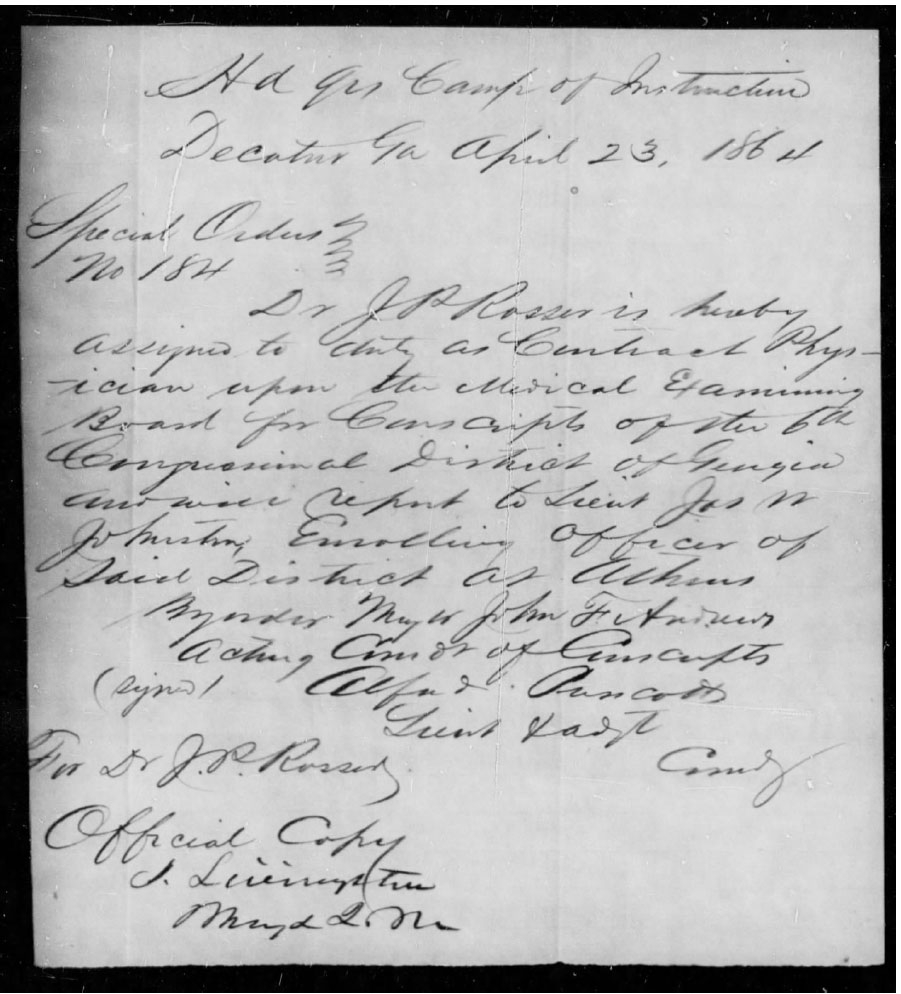 Hd Qrs Camp of Instruction
Decatur Ga April 23, 1864
Special Orders
No 184
Dr J P Rosser is hereby
assigned to duty as Contract Phys-
-ician upon the Medical Examining
Board for Conscripts of the 6th
Congressional District of Georgia
and will report to Lieut Jas W
Johnston, Enrolling Officer of
Said District at Athens
By order Major John F. Andrews
Acting Comdt of Conscripts
(signed) Alfred Prescott
Lieut & adjt
For Dr J. P. Rosser
Comdg
Official Copy
J. Livingston
Maj & Q. M